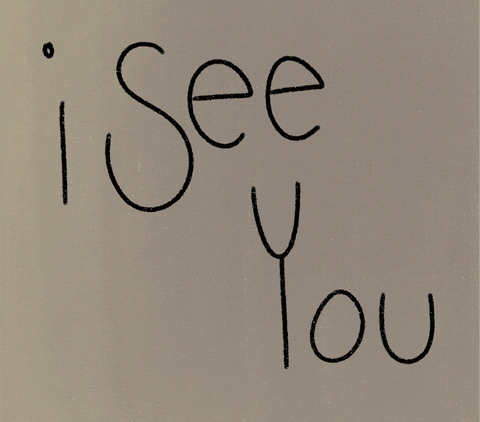 i See
You